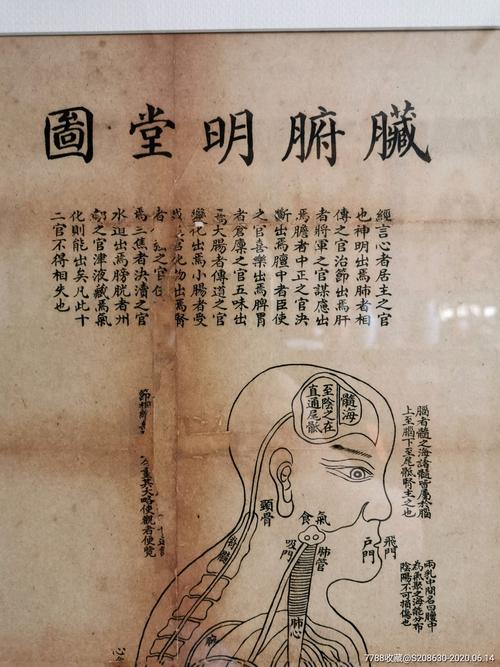 臟腑明堂圖
經言心者居主之官
也神明出焉肺者相
傳之官治節出焉肝
者將軍之官謀應出
焉膽者中正之官決
斷出焉膻中者臣使
之官喜樂出焉脾胃
者倉廩之官五味出
焉大腸者傳道之官
變化出焉小腸者受
之官化物出焉腎
者之官
焉三焦者決瀆之官
水道出焉膀胱者州
之官津液藏焉氣
化則能出矣凡此十
二官不得相失也
髓海
至陰之在
直通尾骶
腦者髓之海諸髓皆屬於腦
上至腦下至尾骶腎主之也
頸骨
氣
食
吸門
肺管
戶門
飛門
兩乳中間名曰膻中
為氣聚之海能分布
陰陽不可損傷也
其大略使觀者便覽
肺
心
7788收藏@S208630-2020.06.14